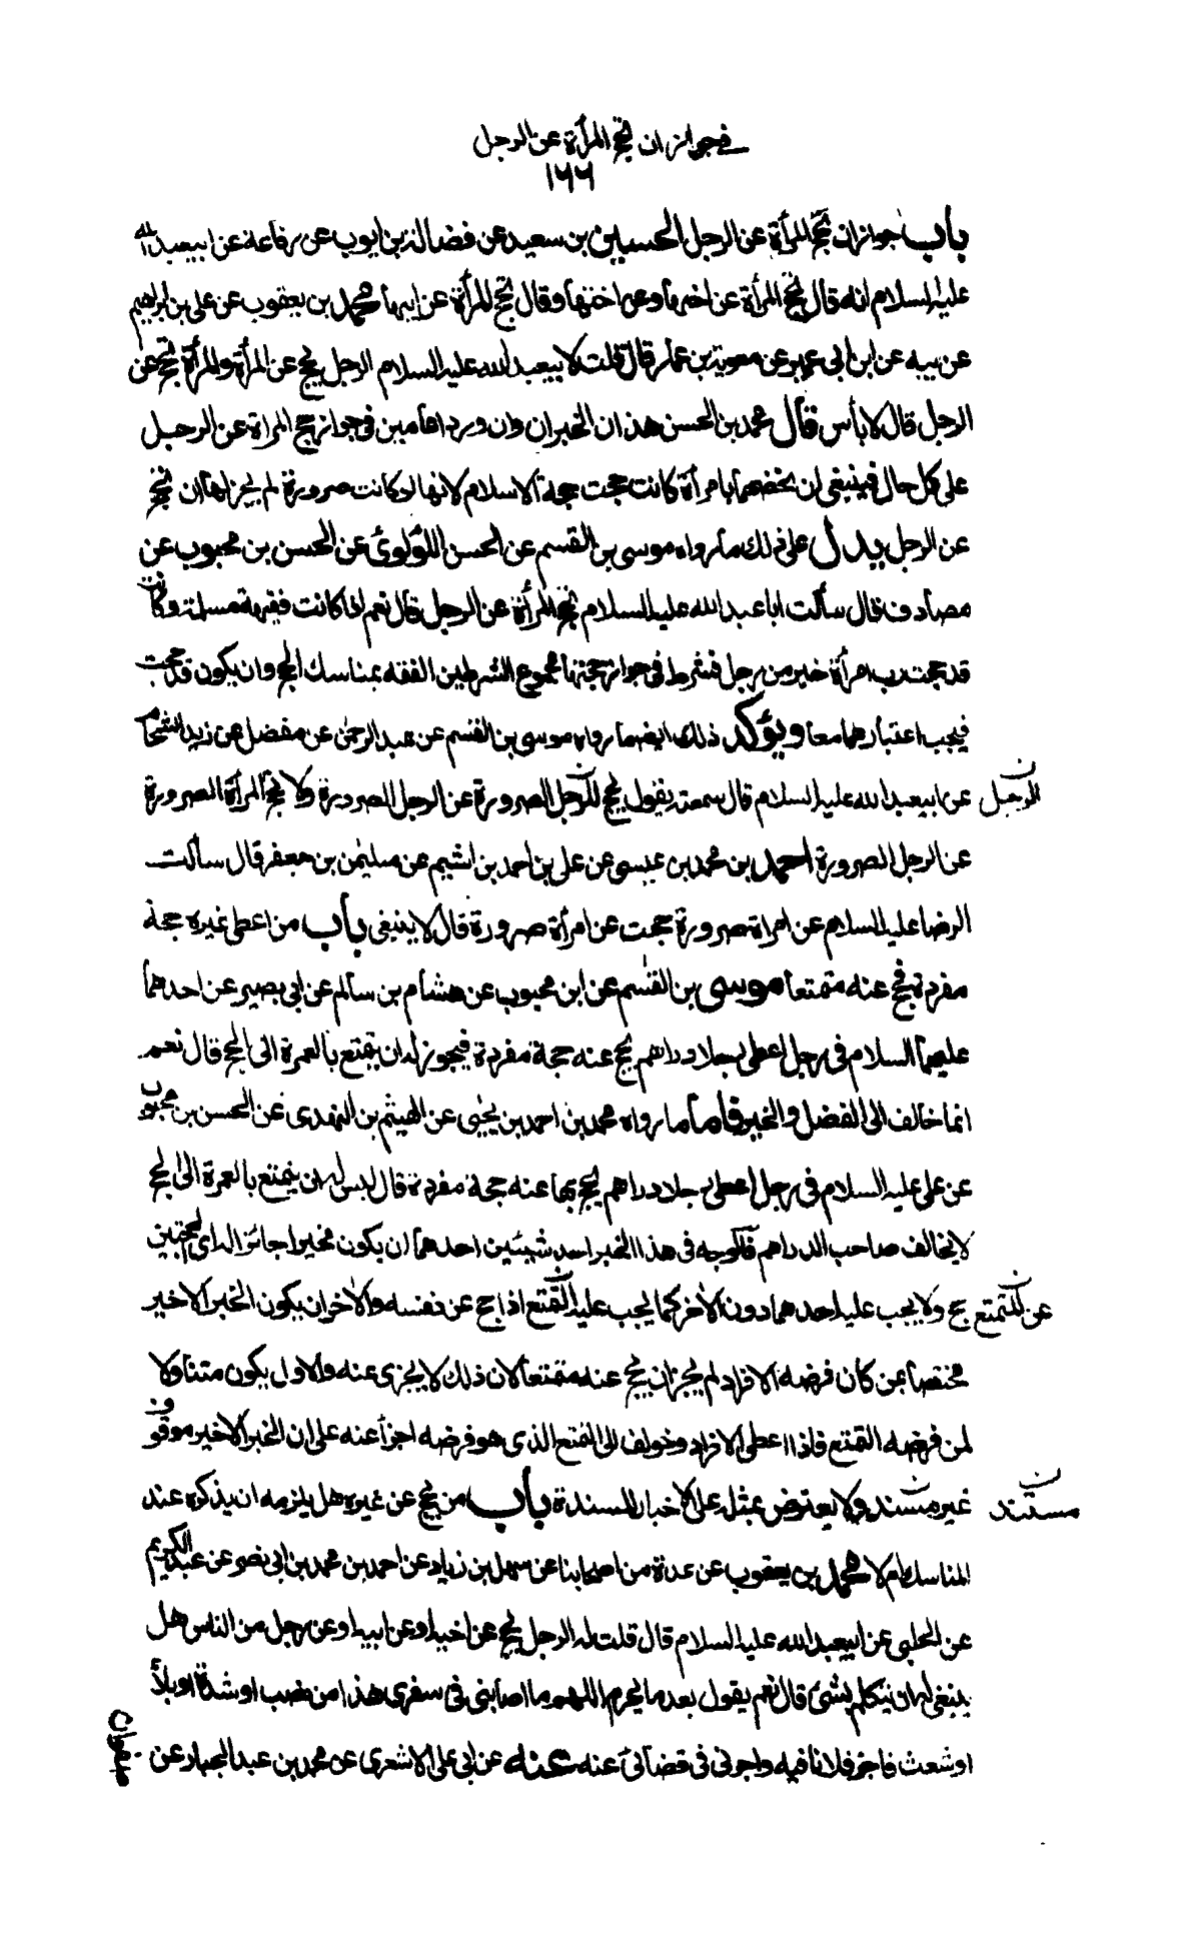 في جواز ان تحج المرأة عن الرجل
١٦٦
باب جواز ان تحج المرأة عن الرجل الحسين بن سعيد عن فضالة بن ايوب عن رفاعة عن ابيعبد الله
عليه السلام انه قال تحج المرأة عن اخيها وعن اختها وقال تحج المرأة عن ابيها محمد بن يعقوب عن علي بن ابراهيم
عن ابيه عن ابن ابي عمير عن معوية بن عمار قال قلت لابيعبد الله عليه السلام الرجل يحج عن المرأة والمرأة تحج عن
الرجل قال لا بأس قال محمد بن الحسن هذان الخبران وان وردا عامين في جواز حج المراة عن الرجل
على كل حال فينبغي ان نخصهما بامرأة كانت حجت حجة الاسلام لانها لو كانت صرورة لم يجز لها ان تحج
عن الرجل يدل على ذلك ما رواه موسى بن القسم عن الحسن اللؤلوئ عن الحسن بن محبوب عن
مصادف قال سألت ابا عبد الله عليه السلام تحج المرأة عن الرجل قال نعم اذا كانت فقيهة مسلمة وكانت
قد حجت رب امرأة خير من رجل فشرط في جواز حجتها مجموع الشرطين الفقه بمناسك الحج وان يكون قد حجت
فيجب اعتبارهما معا ويؤكد ذلك ايضا ما رواه موسى بن القسم عن عبد الرحمن عن مفضل عن زيد الشحام
عن ابيعبد الله عليه السلام قال سمعته يقول يحج الرجل الصرورة عن الرجل الصرورة ولا تحج المرأة الصرورة
الرجل ن
عن الرجل الصرورة احمد بن محمد بن عيسى عن علي بن احمد بن اشيم عن سليمن بن جعفر قال سألت
الرضا عليه السلام عن امراة صرورة حجت عن امرأة صرورة قال لا ينبغي باب من اعطى غيره حجة
مفردة فحج عنه متمتعا موسى بن القسم عن ابن محبوب عن هشام بن سالم عن ابي بصير عن احدهما
عليهما السلام في رجل اعطى رجلا دراهم يحج عنه حجة مفردة فيجوز له ان يتمتع بالعمرة الى الحج قال نعم
انما خالف الى الفضل والخير فاما ما رواه محمد بن احمد بن يحيى عن الهيثم بن النهدى عن الحسن بن محبوب
عن علي عليه السلام في رجل اعطى رجلا دراهم يحج بها عنه حجة مفردة قال ليس له ان يتمتع بالعمرة الى الحج
لا يخالف صاحب الدراهم فالوجه في هذا الخبر احد شيئين احدهما ان يكون مخيرا جائز الا اى الحجتين
حج ولا يجب عليه احدهما دون الاخر كما يجب عليه التمتع اذا حج عن نفسه والاخر ان يكون الخبر الاخير
عن المتمتع ن
مختصا بمن كان فرضه الافراد لم يجز ان يحج عنه متمتعا لان ذلك لا يجزى عنه والاول يكون متناولا
لمن فرضه التمتع فاذا اعطى الافراد وخولف الى التمتع الذى هو فرضه اجزأ عنه على ان الخبر الاخير موقوف
غير مسند ولا يعترض بمثله على الاخبار المسندة باب من يحج عن غيره هل يلزمه ان يذكره عند
مستند ن
المناسك ام لا محمد بن يعقوب عن عدة من اصحابنا عن سهل بن زياد عن احمد بن محمد بن ابي نصر عن عبد الكريم
عن الحلبي عن ابيعبد الله عليه السلام قال قلت له الرجل يحج عن اخيه او عن ابيه او عن رجل من الناس هل
ينبغي له ان يتكلم بشئ قال نعم يقول بعد ما يحرم اللهم ما اصابني في سفرى هذا من نصب او شدة او بلاء
او شعث فاجر فلانا فيه واجرني في قضآئى عنه عنه عن ابي على الاشعرى عن محمد بن عبد الجبار عن
صفوان